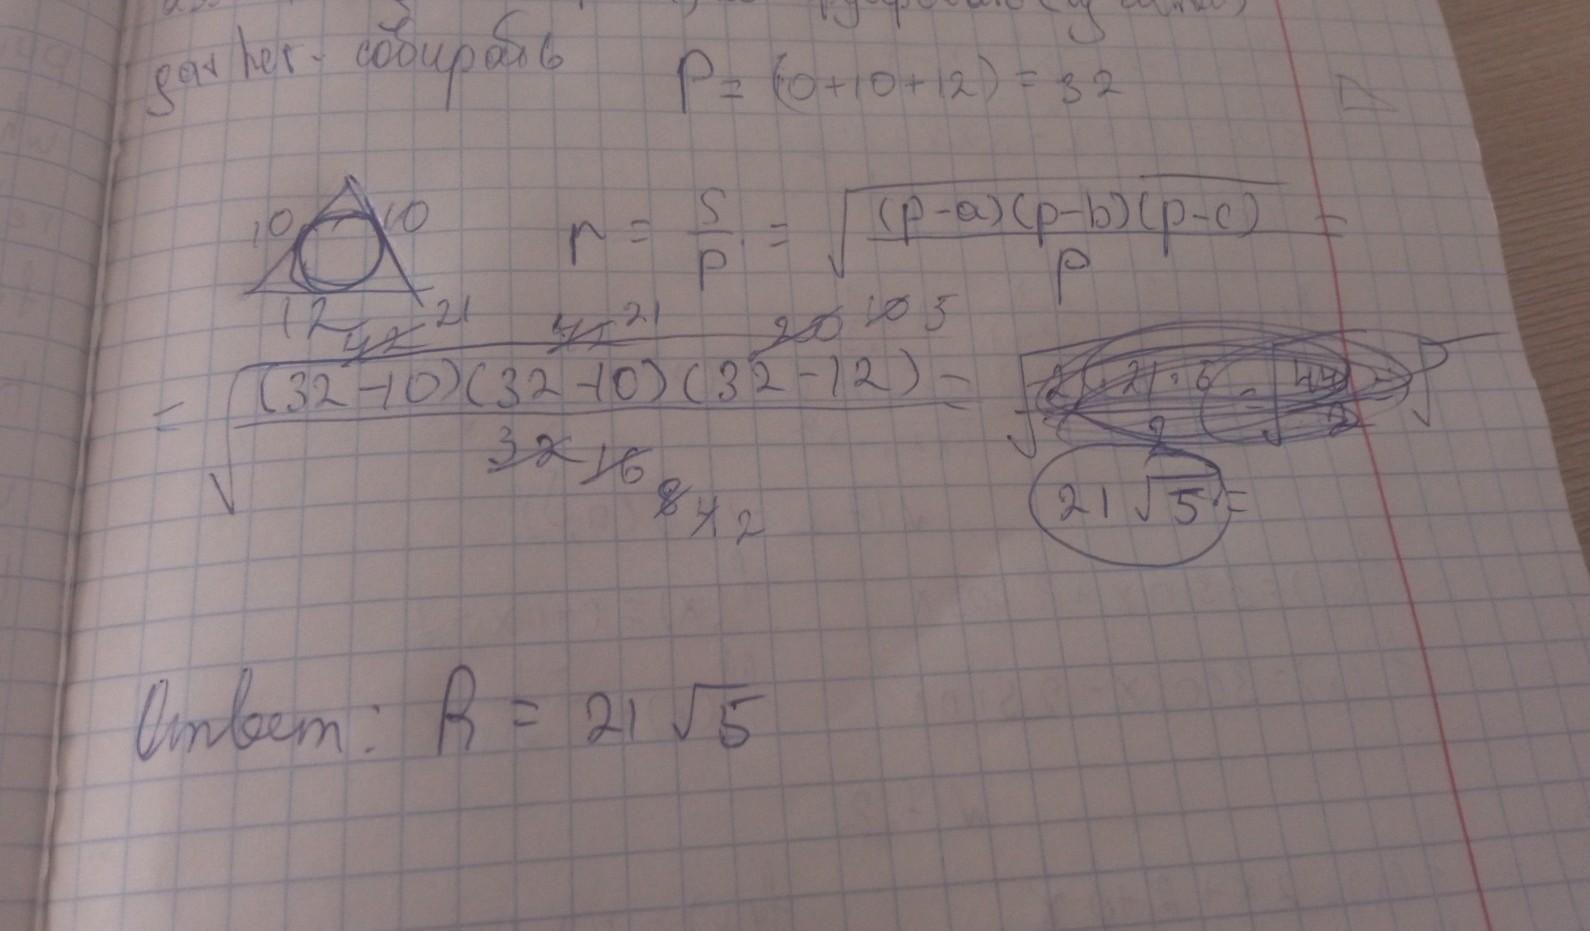 gather - собирать
P = (10+10+12) = 32
10 10
12
r = S/p = √((p-a)(p-b)(p-c)/p) =
42 21 42 21 20 10 5
= √((32-10)(32-10)(32-12)/32) =
32 16 8 4 2
21√5 =
Ответ: R = 21√5